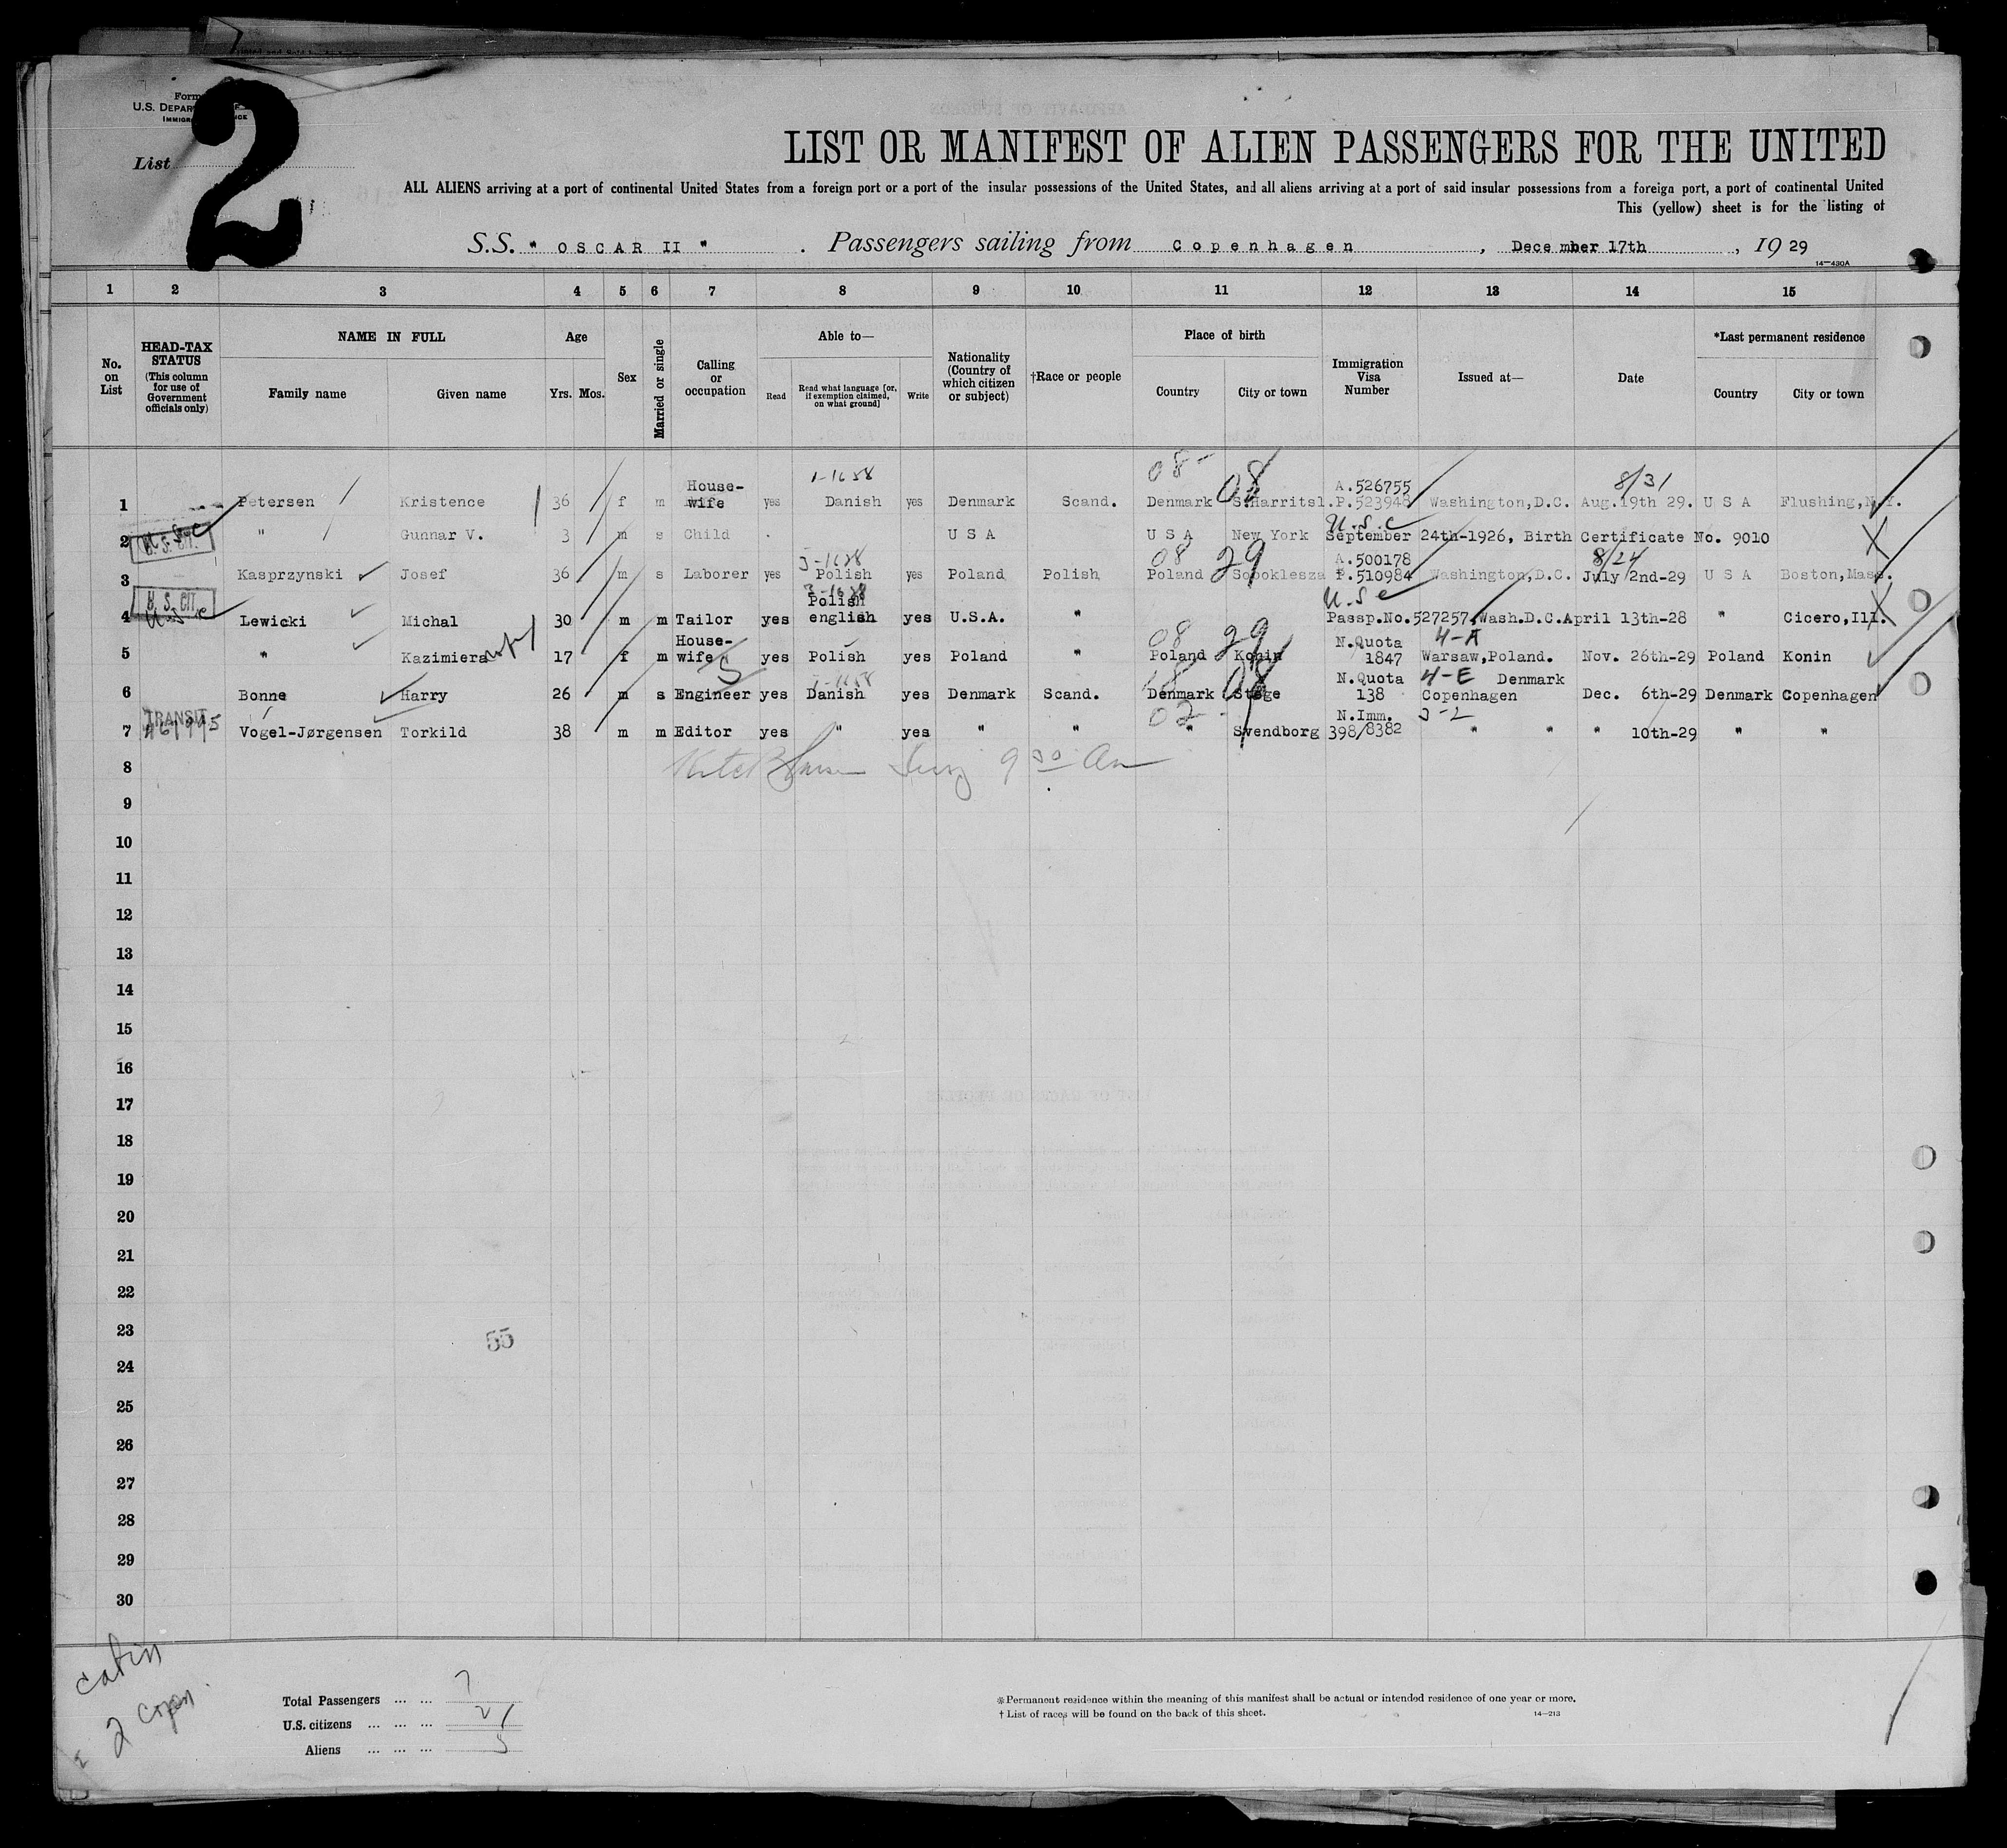 Form
U.S. DEPAR
IMMIGR
List
2
LIST OR MANIFEST OF ALIEN PASSENGERS FOR THE UNITED
ALL ALIENS arriving at a port of continental United States from a foreign port or a port of the insular possessions of the United States, and all aliens arriving at a port of said insular possessions from a foreign port, a port of continental United
This (yellow) sheet is for the listing of
S.S. " OSCAR II " . Passengers sailing from Copenhagen , December 17th , 19 29
14—430A
1 2 3 4 5 6 7 8 9 10 11 12 13 14 15
No. on List
HEAD-TAX STATUS (This column for use of Government officials only)
NAME IN FULL
Family name Given name
Age
Yrs. Mos.
Sex
Married or single
Calling or occupation
Able to—
Read Read what language [or, if exemption claimed, on what ground] Write
Nationality (Country of which citizen or subject)
†Race or people
Place of birth
Country City or town
Immigration Visa Number
Issued at—
Date
*Last permanent residence
Country City or town
1-1658 08- 08 8/31
House- A.526755
1 Petersen Kristence 36 f m wife yes Danish yes Denmark Scand. Denmark S.Harritsl. P.523948 Washington,D.C. Aug.19th 29. U S A Flushing,N.Y.
U.S.C U.S.C
2 U. S. CIT. " Gunnar V. 3 m s Child U S A U S A New York September 24th-1926, Birth Certificate No. 9010
08 29 A.500178 8/24
3 Kasprzynski Josef 36 m s Laborer yes Polish yes Poland Polish Poland Sopoklesza P.510984 Washington,D.C. July 2nd-29 U S A Boston,Mass.
U. S. CIT. Polish U.S.C
4 U.S.C Lewicki Michal 30 m m Tailor yes english yes U.S.A. " Passp.No.527257,Wash.D.C.April 13th-28 " Cicero,Ill.
House- 08 29 N.Quota 4-A
5 " Kazimiera wife 17 f m wife yes Polish yes Poland " Poland Konin 1847 Warsaw,Poland. Nov. 26th-29 Poland Konin
08 N.Quota 4-E Denmark
6 Bonne Harry 26 m s Engineer yes Danish yes Denmark Scand. Denmark Stege 138 Copenhagen Dec. 6th-29 Denmark Copenhagen
TRANSIT 02 N.Imm. 3-2
7 Vogel-Jørgensen Torkild 38 m m Editor yes " yes " " " Svendborg 398/8382 " " " 10th-29 " "
8 9 30 Am
9
10
11
12
13
14
15
16
17
18
19
20
21
22
23
55
24
25
26
27
28
29
30
cabin
2 Copen.
Total Passengers ... ... 7
U.S. citizens ... ... ... 2
Aliens ... ... ... 5
*Permanent residence within the meaning of this manifest shall be actual or intended residence of one year or more.
† List of races will be found on the back of this sheet.
14—213